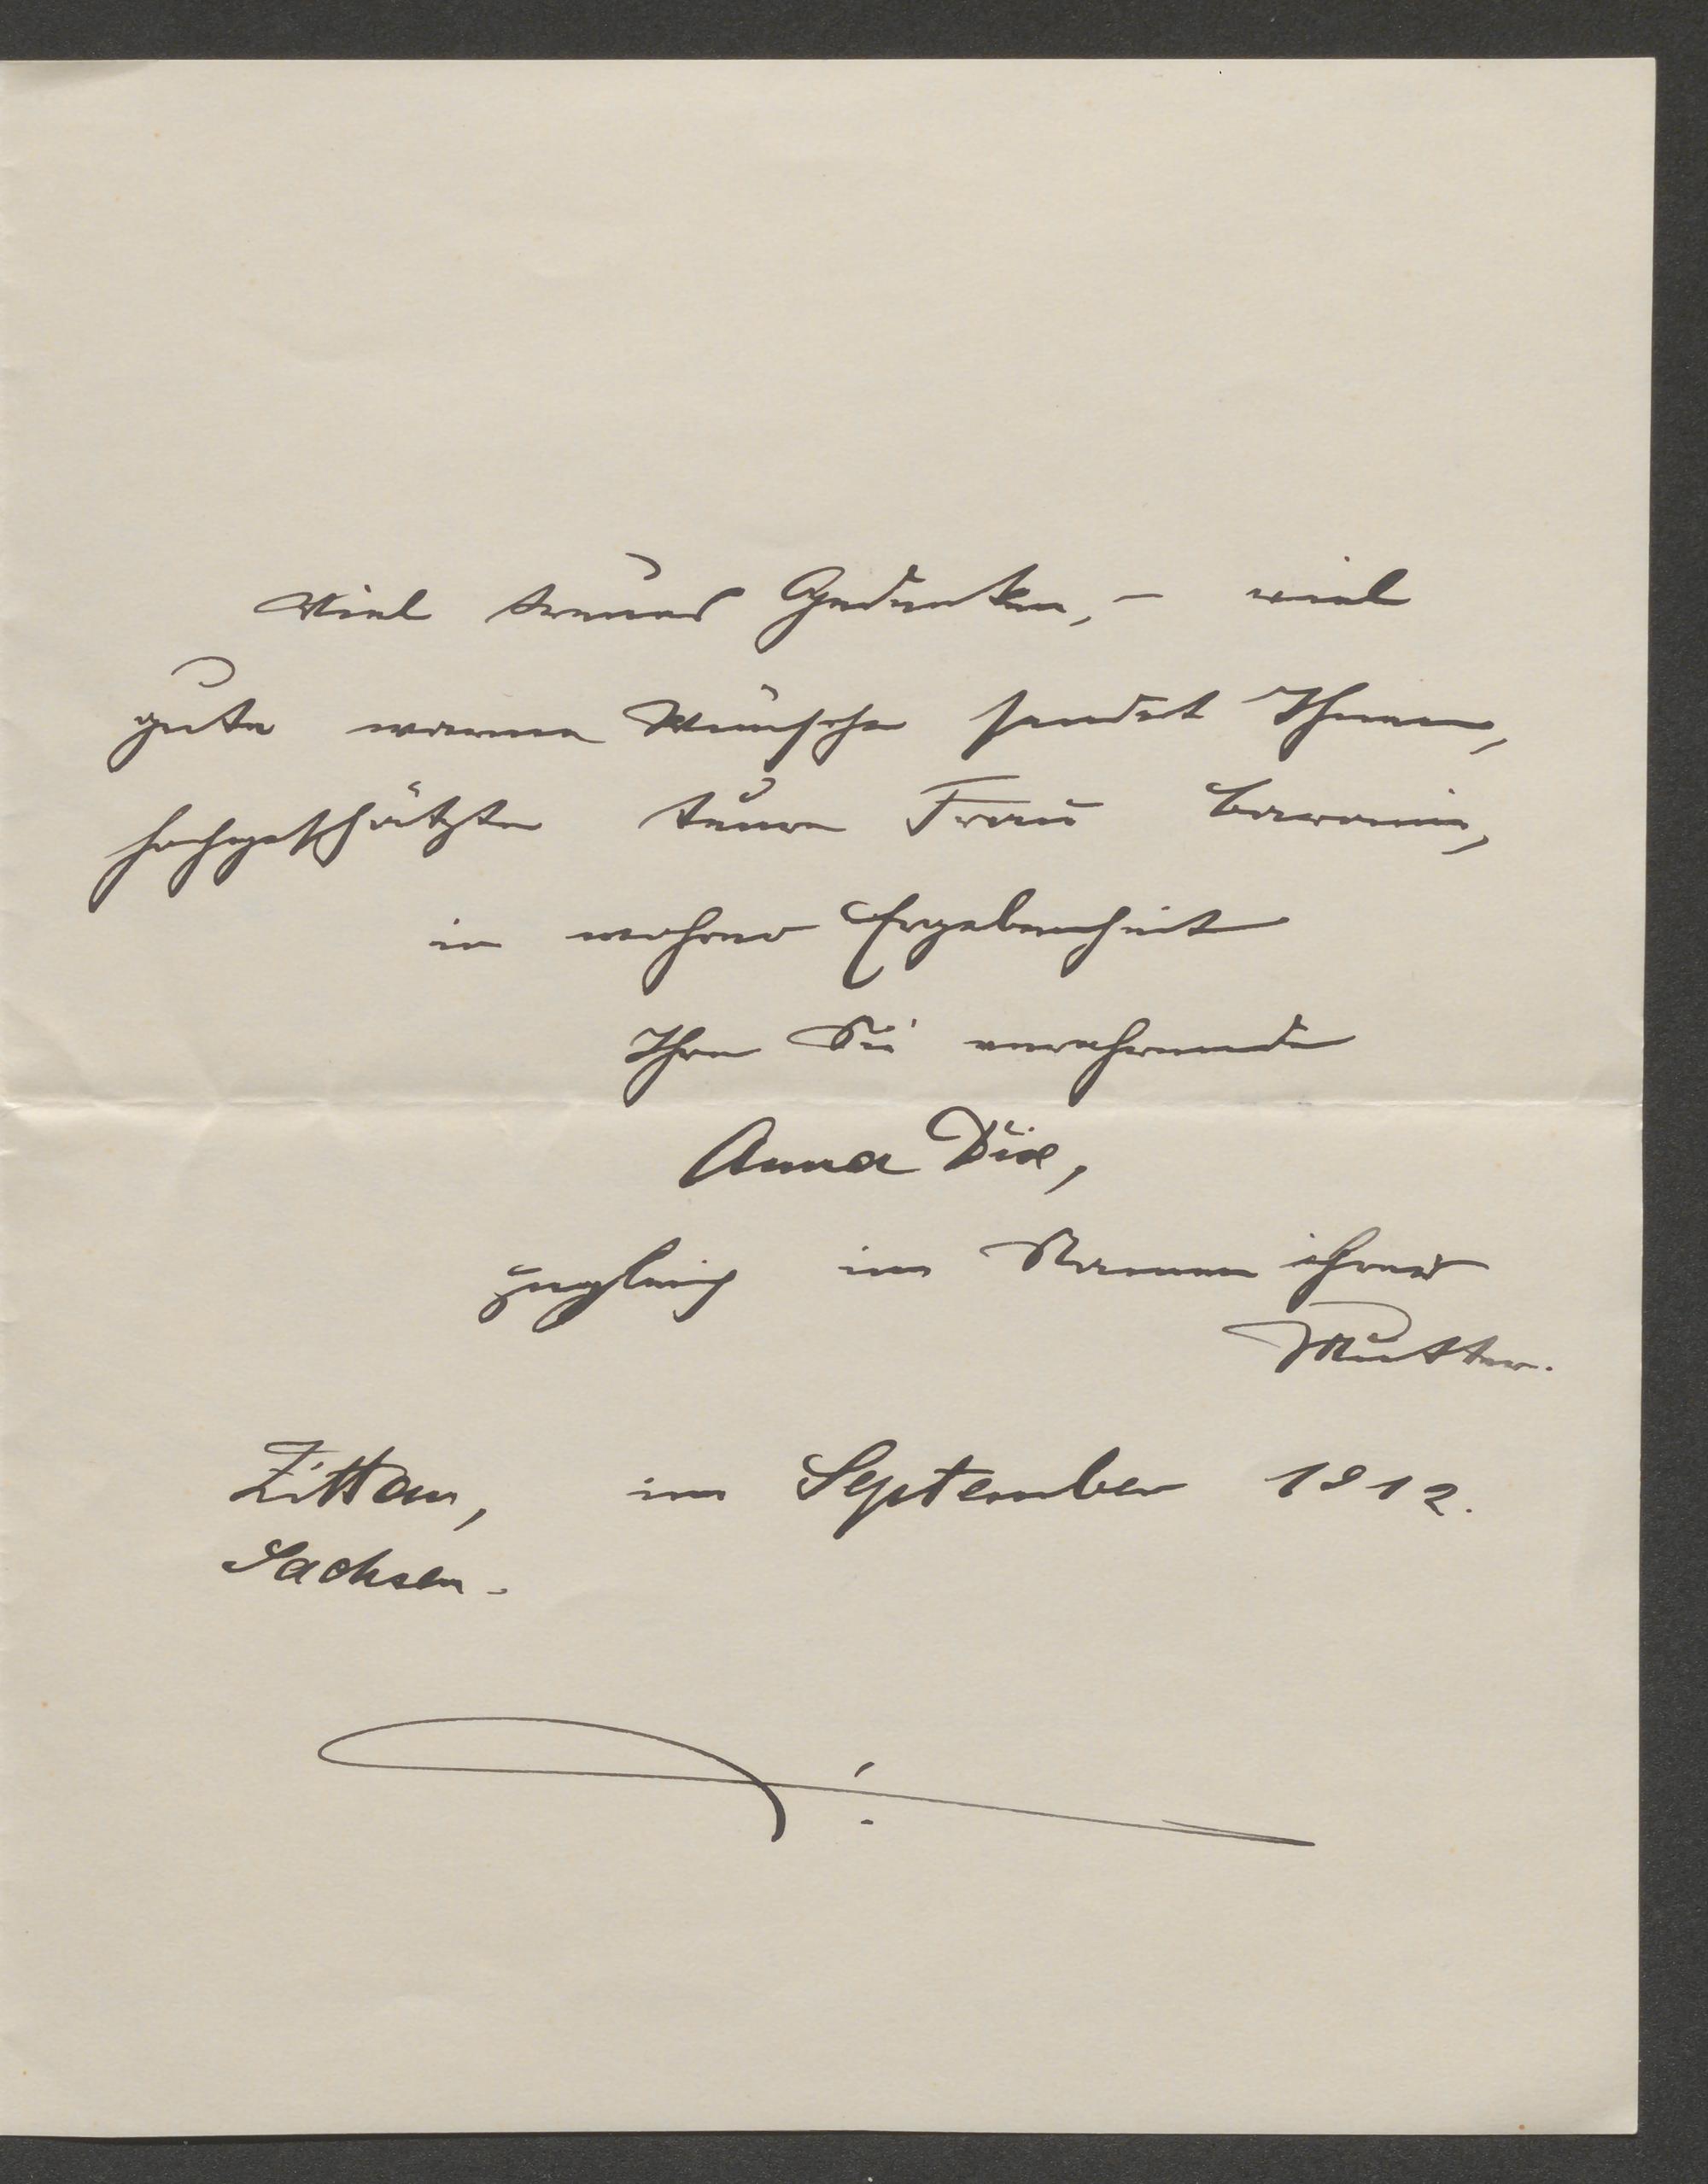 Viel treues Gedenken, – viel
gute warme Wünsche sendet Ihnen,
hochgeschätzte teure Frau Baronin,
in wahrer Ergebenheit
Ihre Sie verehrende
Anna Dix,
zugleich im Namen ihrer
Mutter.
Zittau, im September 1912.
Sachsen.